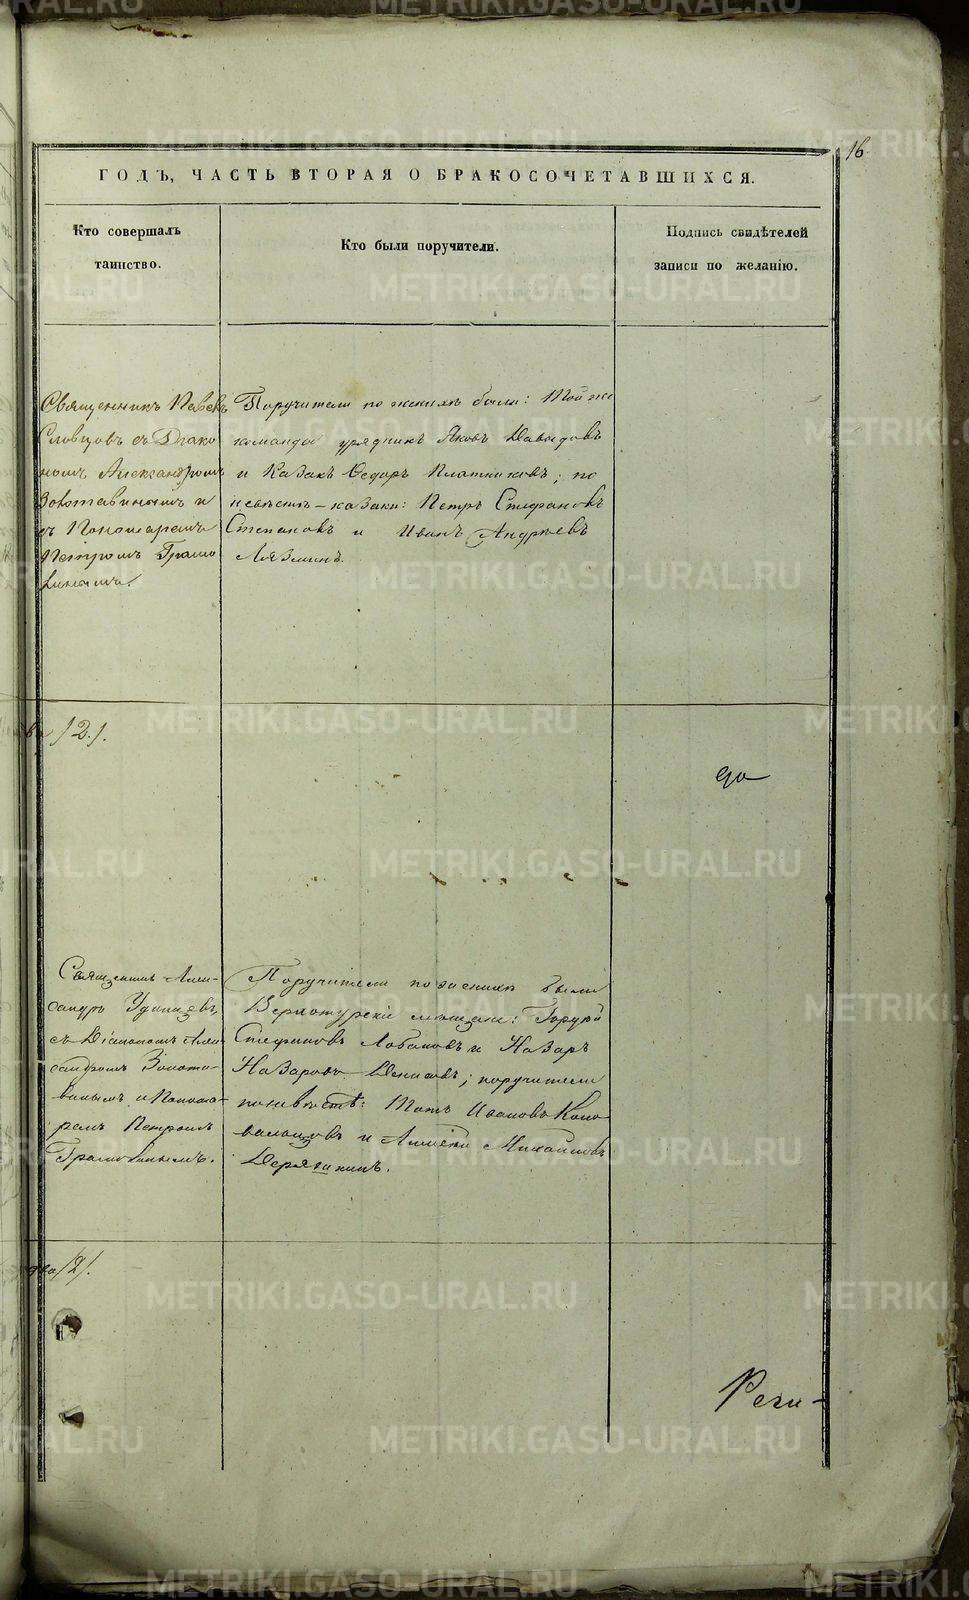 16.
ГОДЪ, ЧАСТЬ ВТОРАЯ О БРАКОСОЧЕТАВШИХСЯ.
Кто совершалъ
таинство.
Кто были поручители.
Подпись свидѣтелей
записи по желанію.
Священникъ Павелъ
Словцовъ съ Діако
номъ Александромъ
Золотавинымъ и
съ Пономаремъ
Петромъ Грамо
линымъ.
Поручители по женихѣ были: Той же
команды урядникъ Яковъ Давыдовъ
и Казакъ Ѳедоръ Плотниковъ; по
невѣстѣ – казаки: Петръ Стефановъ
Степановъ и Иванъ Андрѣевъ
/2/.
Священникъ Алек-
сандръ Удинцевъ
съ Діакономъ Алек
сандромъ Золота-
винымъ и Понома-
ремъ Петромъ
Поручители по женихѣ были
Верхотурскіе мѣщане:
Стефановъ Лобановъ и Назаръ
Назаровъ Денисовъ; поручители
по невѣстѣ: Ивановъ Коно-
валовъ и Алексѣй Михайловъ
Дерягинъ.
два /2/.
Реги-
METRIKI.GASO-URAL.RU